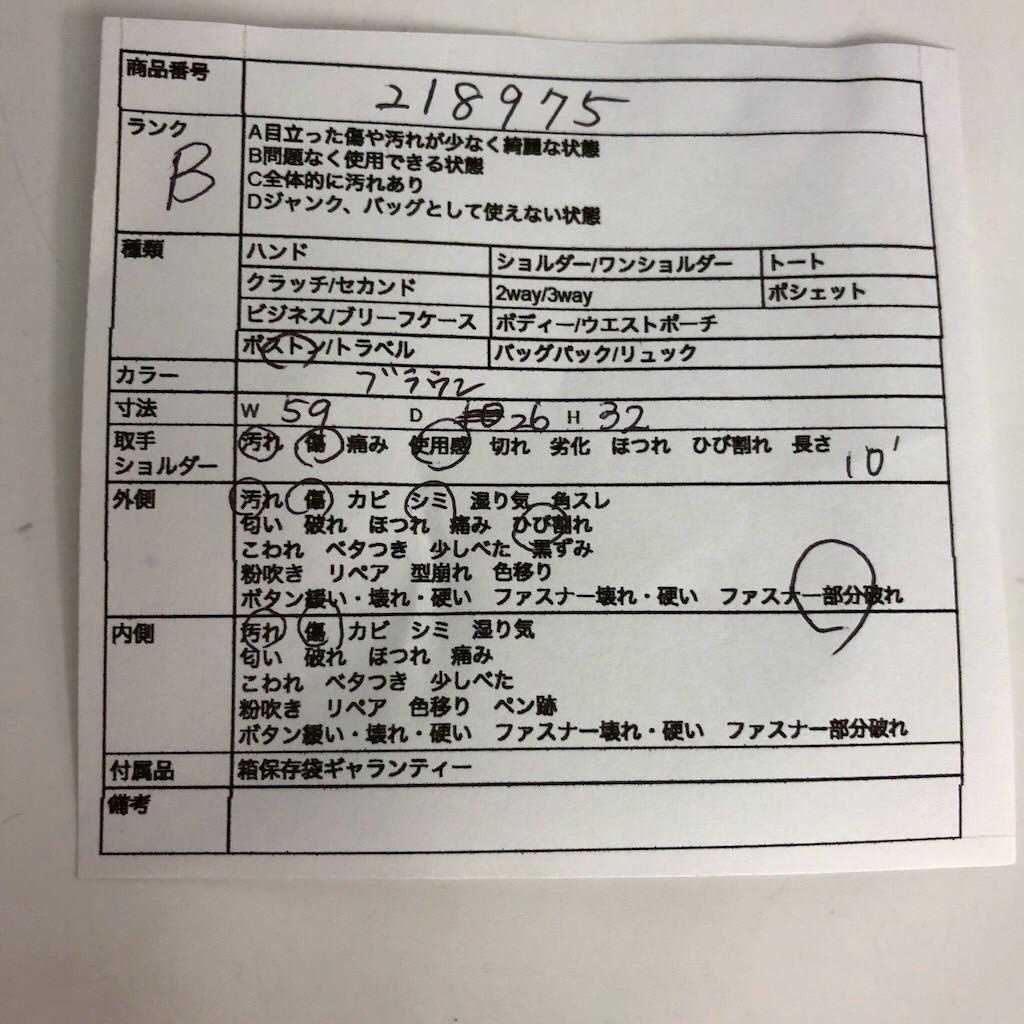 商品番号 218975
ランク B
A目立った傷や汚れが少なく綺麗な状態
B問題なく使用できる状態
C全体的に汚れあり
Dジャンク、バッグとして使えない状態
種類 ハンド ショルダー/ワンショルダー トート
クラッチ/セカンド 2way/3way ポシェット
ビジネス/ブリーフケース ボディー/ウエストポーチ
ボストン/トラベル バッグパック/リュック
カラー ブラウン
寸法 W 59 D 26 H 32
取手 汚れ 傷 痛み 使用感 切れ 劣化 ほつれ ひび割れ 長さ 10
ショルダー
外側 汚れ 傷 カビ シミ 湿り気 角スレ
匂い 破れ ほつれ 痛み ひび割れ
こわれ ベタつき 少しべた 黒ずみ
粉吹き リペア 型崩れ 色移り
ボタン緩い・壊れ・硬い ファスナー壊れ・硬い ファスナー部分破れ
内側 汚れ 傷 カビ シミ 湿り気
匂い 破れ ほつれ 痛み
こわれ ベタつき 少しべた
粉吹き リペア 色移り ペン跡
ボタン緩い・壊れ・硬い ファスナー壊れ・硬い ファスナー部分破れ
付属品 箱保存袋ギャランティー
備考